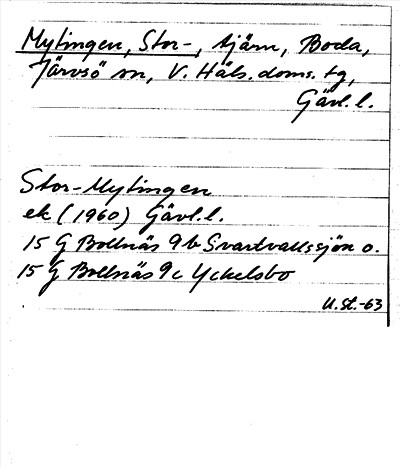 Mytingen, Stor-, tjärn, Boda,
Järvsö sn, V. Häls. doms. tg,
Gävl. l.
Stor-Mytingen
ek (1960) Gävl. l.
15 G Bollnäs 9b Svartvallssjön o.
15 G Bollnäs 9c Yckelsbo
U.St.-63